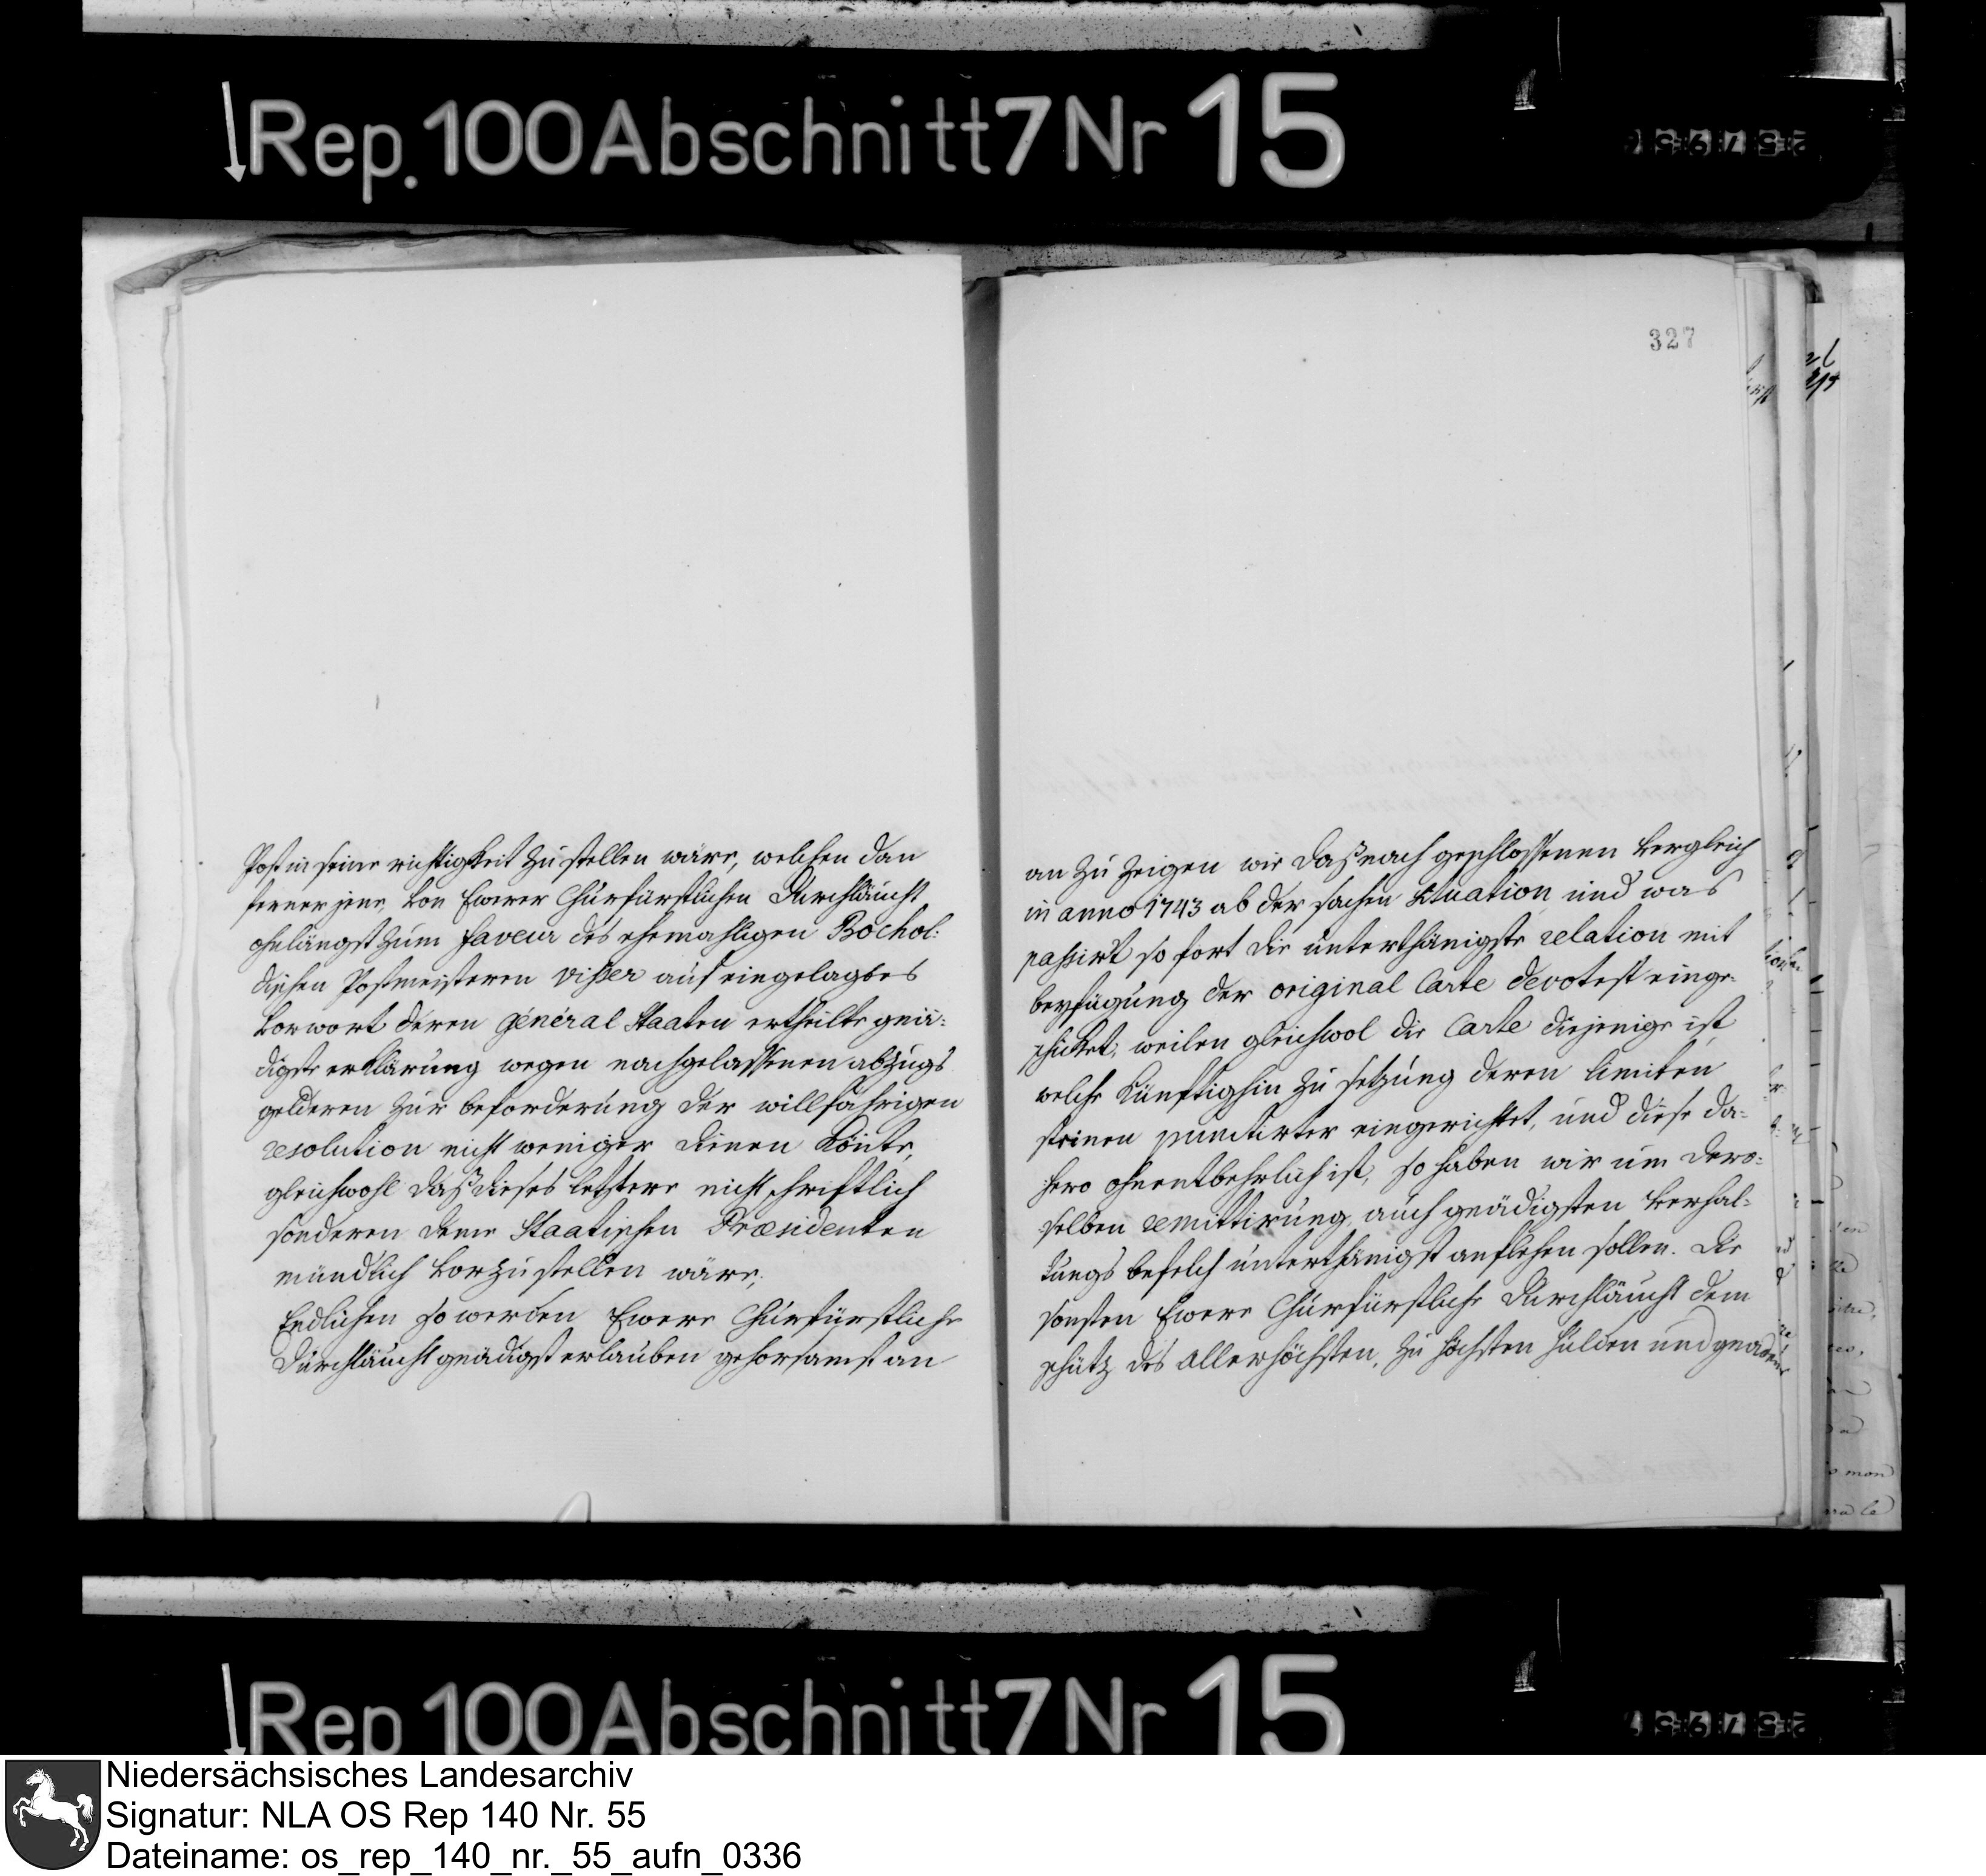 Rep. 100 Abschnitt 7 Nr 15
Post in seine richtigkeit zu stellen wäre, welchen dan
ferner jene, von Ewerer Churfürstlichen Durchläucht
ohnlängst zum faveur des ehemahligen Bochol:
dischen Postmeisteren Visser auf eingelagtes
Vorwort deren Général Staaten ertheilte gnä:
digste erklärung wegen nachgelassenen abzugs
gelderen zur beforderung der willfahrigen
resolution nicht weniger dienen könte,
gleichwohl daß dieses letztere nicht schriftlich
sonderen denen Staatischen Præsidenten
mündlich vorzustellen wäre,
Endlichen so werden Ewere Churfürstliche
Durchläucht gnädigst erlauben gehorsamst an
327
an zu zeigen wie daß nach geschlossenen Vergleich
in anno 1743 ab der sachen situation und was
passirt so fort die unterthänigste relation mit
beyfügung der original Carte devotest einge-
schickt; weilen gleichwol die Carte diejenige ist
welche künftighin zu setzung deren limiten
steinen punctirter eingerichtet, und diese da-
hero ohnentbehrlich ist, so haben wir um dero-
selben remittirung, auch gnädigsten Verhal-
tungs befelch unterthänigst anflehen sollen. Die
sonsten Ewere Churfürstliche Durchläucht dem
schutz des Allerhöchsten, zu höchsten hulden und gnaden
Rep 100 Abschnitt 7 Nr 15
Niedersächsisches Landesarchiv
Signatur: NLA OS Rep 140 Nr. 55
Dateiname: os_rep_140_nr._55_aufn_0336